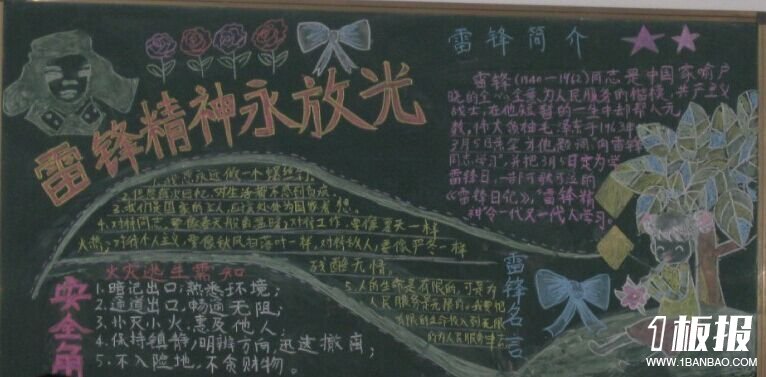 雷锋精神永放光
雷锋简介
雷锋(1940—1962)同志是中国家喻户
晓的全心全意为人民服务的楷模,共产主义
战士,在他短暂的一生中却帮人无
数,伟大领袖毛泽东于1963年
3月5日亲笔为他题词"向雷锋
同志学习",并把3月5日定为学
雷锋日,一部可歌可泣的
《雷锋日记》,"雷锋精
神令一代又一代人学习。
永远做一个螺丝钉
3.我们是国家的主人,应该处处为国家着想。
4.对待同志要像春天般的温暖;对待工作,要像夏天一样
火热;对待个人主义,要像秋风扫落叶一样,对待敌人,要像严冬一样
残酷无情。
5.人的生命是有限的,可是为
人民服务是无限的,我要把
有限的生命投入到无限
的为人民服务中去
雷锋名言
安全角
火灾逃生需知
1.暗记出口,熟悉环境;
2.通道出口,畅通无阻;
3.扑灭小火,惠及他人;
4.保持镇静,明辨方向,迅速撤离;
5.不入险地,不贪财物。
1板报
WWW.1BANBAO.COM